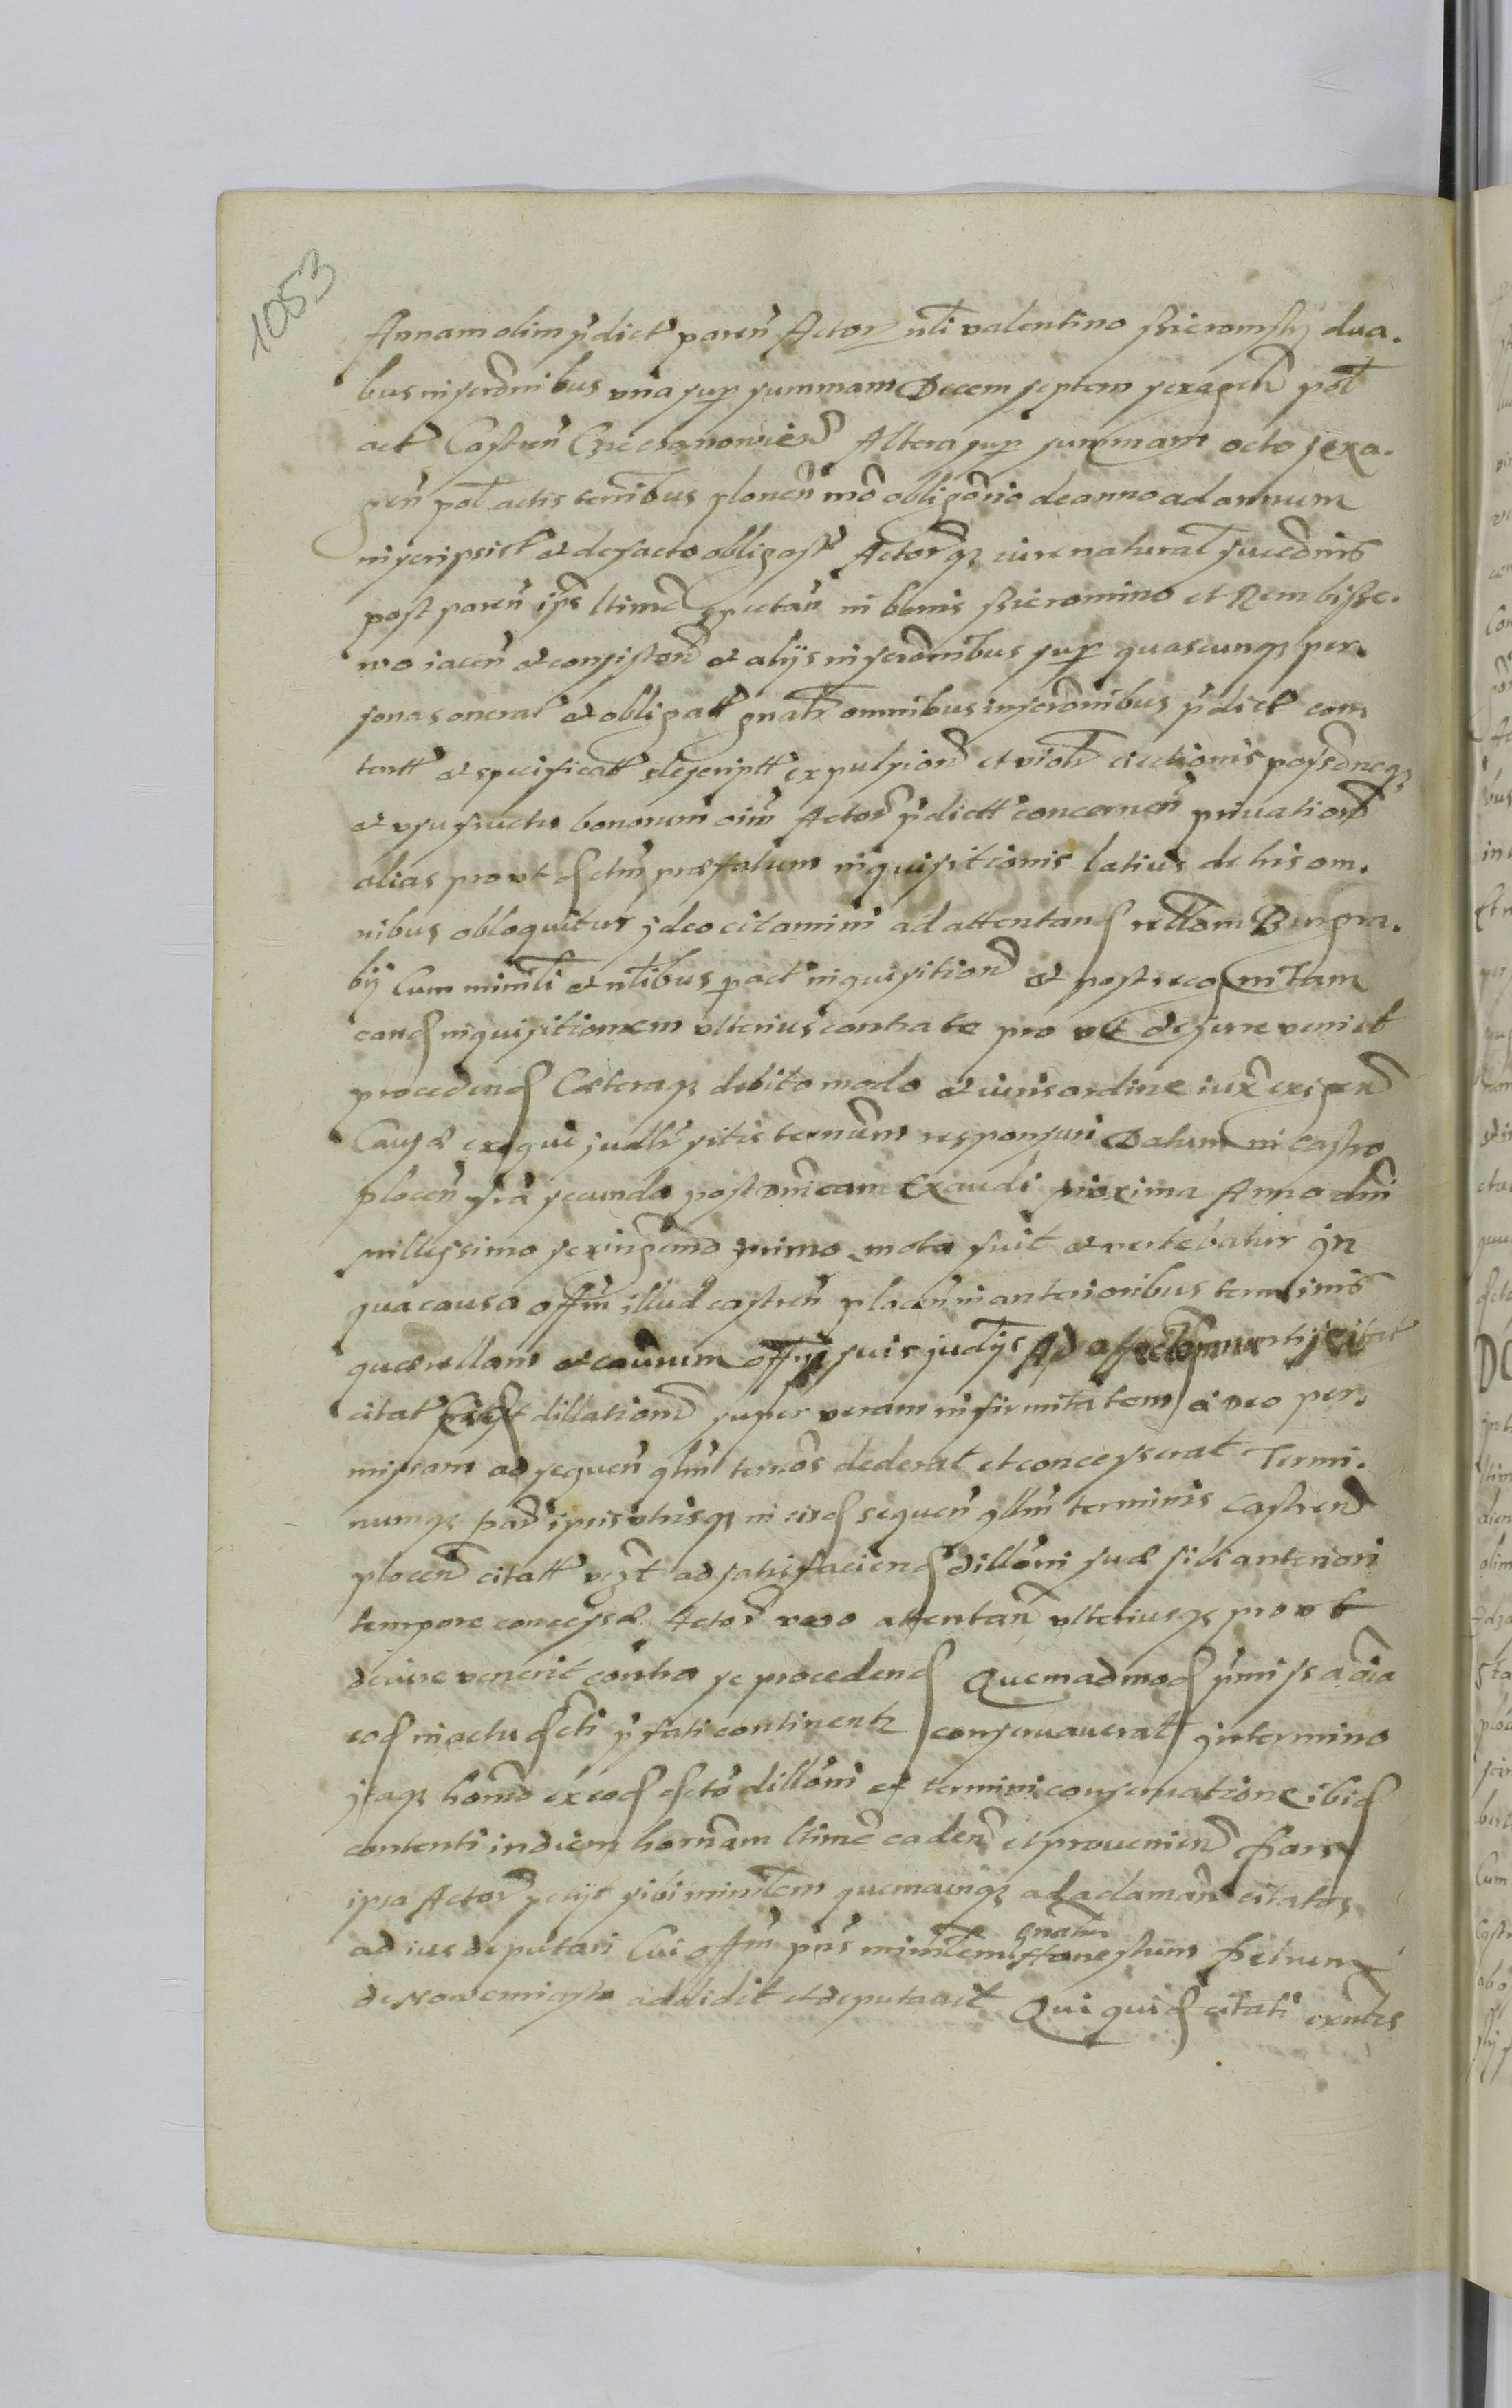 1053
Annam olim pdict paren Actor nli valentino Bieromsky dua.
bus inscrönibus vna sup summam Decem septem sexagen pol
act Castren Ciechanowien Altera sup summam octo sexa.
gen pol actis terribus plonen mo obligorio de anno ad annum
inscripsist et de facto obligast Actorq iure naturat sucednis
post paren ips ltime spectan in bonis Bieromino et Rembisze.
wo iacen et consisten et alys inscronibus sup quascunq per.
sonas onerat et obligatt gnatr omnibus inscronibus pdict con
tentt et specificatt descriptt expulsion et violen eiectionis possoneq
et vsufructu bonorum oim Actor pdictt concernen priuation
alias prout actm præfatum inquisitionis latius de his om.
nibus obloquitur ideo citamini ad attentand rellom Burgra.
bij Cum ministli et nlibus pact inquisition et post recognitam
eand inquisitionem vlterius contra te pro vt de iure veniet
procedend Cæteraq debito modo et iuris ordine iux exigen
Causæ exequi judlr sitis termum responsuri Datum in Castro
plocen fria secunda post dnicam Exaudi proxima Anno dni
millessimo sexingmo primo mota fuit et vertebatur in
qua causa offm illud castren plocen in anterioribus terminis
quærellam et earum offij suis judijs
citat dillation super veram infirmitatem à Deo per.
missam ad sequen qlm termos dederat et concesserat Termi.
numq pad ipsis vtrisq in eisd sequen qllm terminis Castren
plocen citatt vezt ad satisfaciend dilloni suæ sibi anteriori
tempore concessæ Actor vero attentan vlteriusq prout
de iure venerit contra se procedend Quemadmod pmissa oia
eod in actu acti pfati continentr conseruauerat In termino
itaq horno ex eod acto dilloni et termini conseruatione ibid
contenti in diem hornam ltime caden et prouenien Pars
ipsa Actor petyt sibi ministlem quemcunq ad adaman citatos
ad ius deputari Cui offm pns ministlem gnalem Honestum Petrum
de Nowemiasto addidit et deputauit Qui quid citati exntes